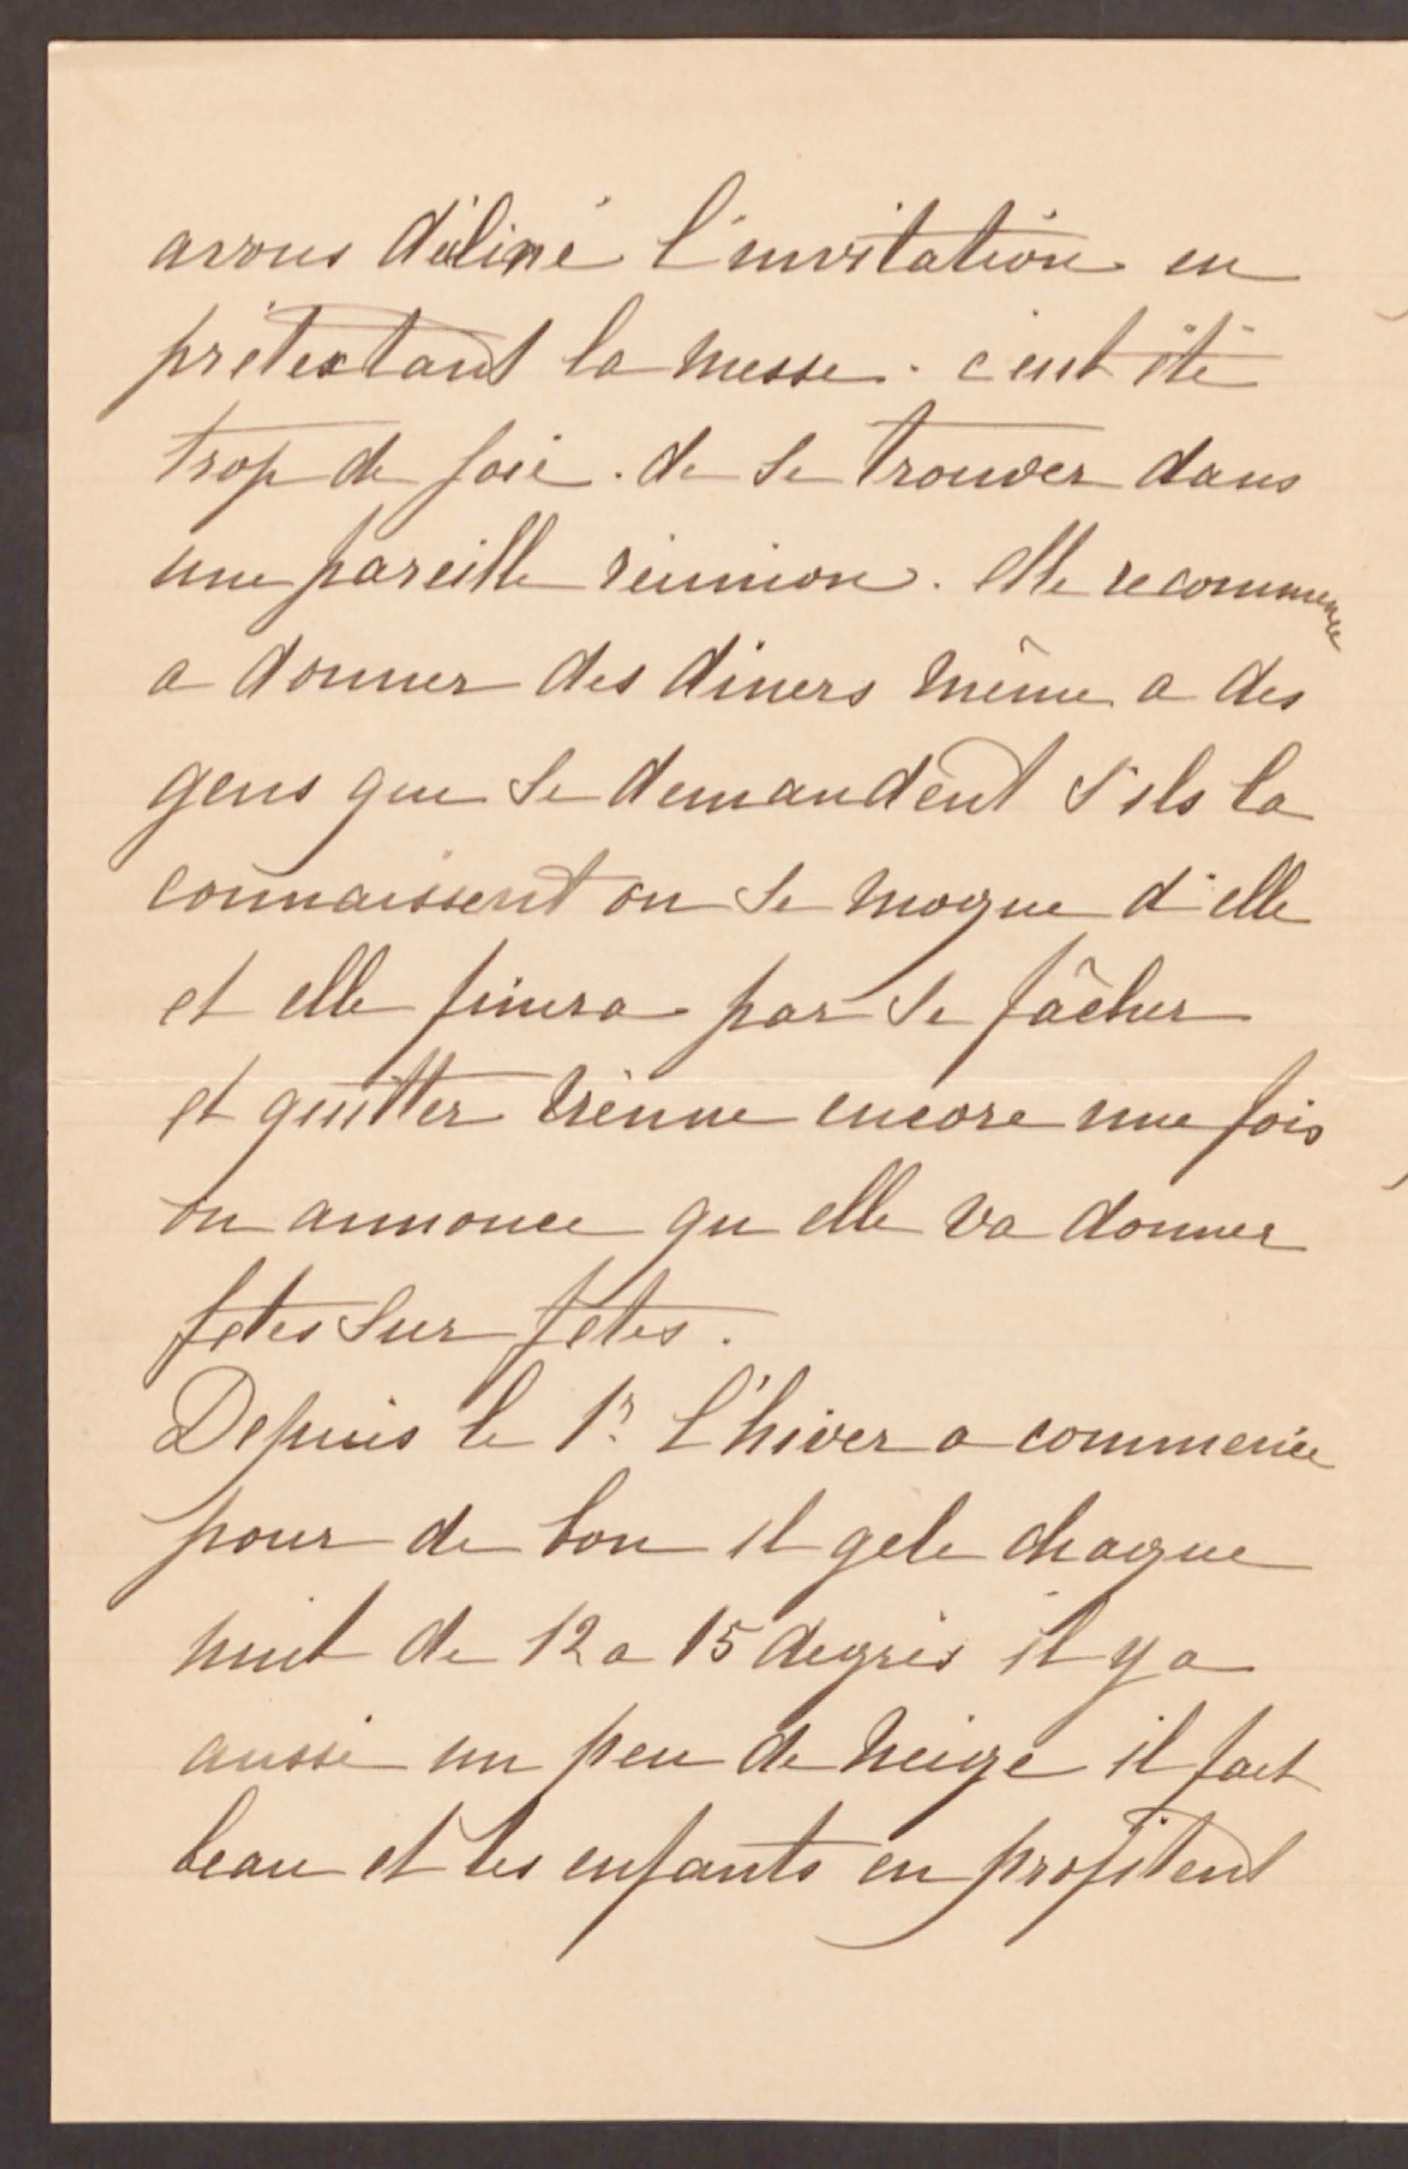 avons décliné l'invitation en
prétextant la messe. c'eut été
trop de joie. de se trouver dans
une pareille réunion. elle recommence
a donner des diners même a des
gens que se demandent s'ils la
connaissent on se moque d'elle
et elle finira par se fâcher
et quitter vienne encore une fois
on annonce qu elle va donner
fetes sur fetes.
Depuis le 1r. l'hiver a commencé
pour de bon il gele chaque
nuit de 12 a 15 degrés il y a
aussi un peu de neige il fait
beau et les enfants en profitent